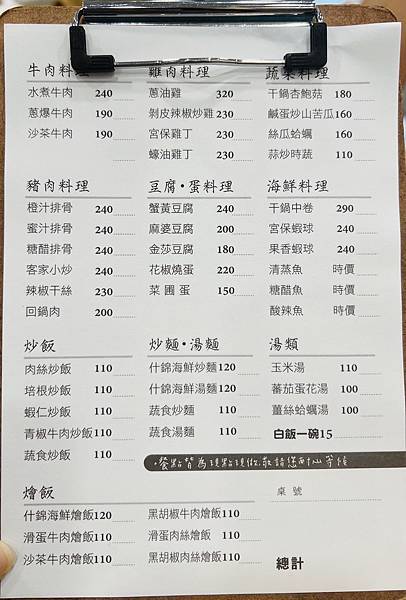 牛肉料理
水煮牛肉 240
蔥爆牛肉 190
沙茶牛肉 190
雞肉料理
蔥油雞 320
剝皮辣椒炒雞 230
宮保雞丁 230
蠔油雞丁 230
蔬菜料理
干鍋杏鮑菇 180
鹹蛋炒山苦瓜160
絲瓜蛤蠣 160
蒜炒時蔬 110
豬肉料理
橙汁排骨 240
蜜汁排骨 240
糖醋排骨 240
客家小炒 240
辣椒干絲 230
回鍋肉 200
豆腐•蛋料理
蟹黃豆腐 240
麻婆豆腐 200
金莎豆腐 180
花椒燒蛋 220
菜圃蛋 150
海鮮料理
干鍋中卷 290
宮保蝦球 240
果香蝦球 240
清蒸魚 時價
糖醋魚 時價
酸辣魚 時價
炒飯
肉絲炒飯 110
培根炒飯 110
蝦仁炒飯 110
青椒牛肉炒飯110
蔬食炒飯 110
炒麵•湯麵
什錦海鮮炒麵120
什錦海鮮湯麵120
蔬食炒麵 110
蔬食湯麵 110
湯類
玉米湯 110
蕃茄蛋花湯 100
薑絲蛤蠣湯 100
白飯一碗15
•餐點皆為現點現做,敬請您耐心等候
燴飯
什錦海鮮燴飯120
滑蛋牛肉燴飯110
沙茶牛肉燴飯110
黑胡椒牛肉燴飯110
滑蛋肉絲燴飯 110
黑胡椒肉絲燴飯110
桌號
總計